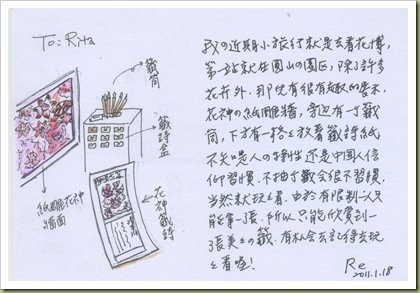 To: Rita
籤筒
籤詩盒
紙雕花神
牆面
花神籤詩
我の近期小旅行就是去看花博,
第一站就在圓山の園區,除了許多
花卉外,那兒有很有趣の摩禾.
花神の紙雕牆,旁邊有一個籤
筒,下方有一格格放著籤詩紙
不知是人の特性還是中國人信
仰習慣,不抽个籤會很不習慣,
當然就玩玩看.由於有限制一次只
能拿一張,所以只能欣賞到一
張美美の籤,有机會去記得去玩
玩看喔!
Re
2011.1.18